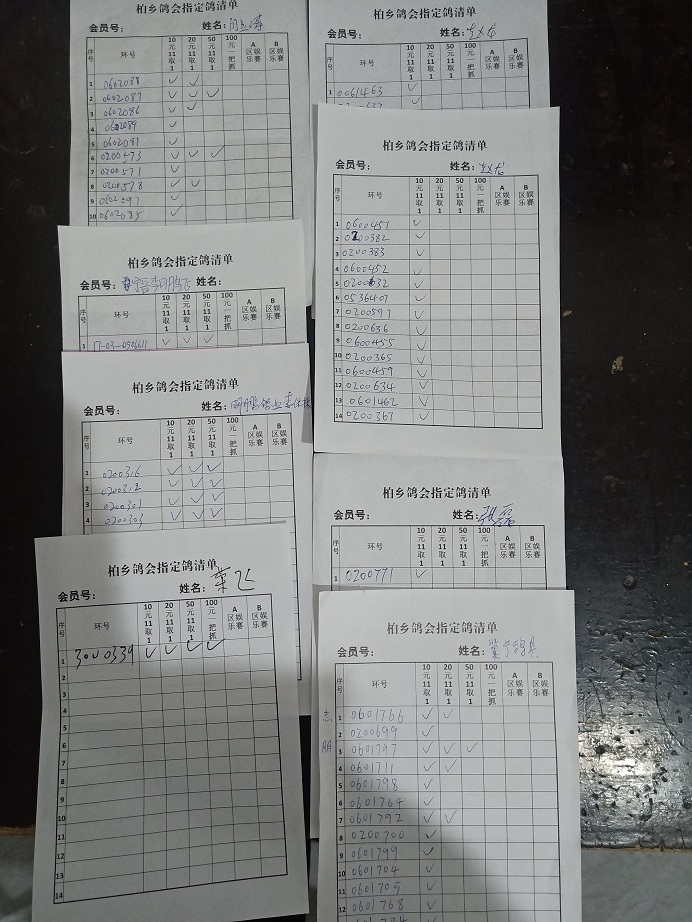 柏乡鸽会指定鸽清单
会员号: 姓名:
序号 环号 10元11取1 20元11取1 50元11取1 100元一把抓 A区娱乐赛 B区娱乐赛
1 0602088 ✓ ✓
2 0602087 ✓ ✓ ✓
3 0602086 ✓ ✓
4 0602089 ✓
5 0602081 ✓
6 0200573 ✓ ✓ ✓
7 0200571 ✓
8 0200578 ✓ ✓
9 0602097 ✓
10 0602085 ✓
柏乡鸽会指定鸽清单
会员号: 姓名:
序号 环号 10元11取1 20元11取1 50元11取1 100元一把抓 A区娱乐赛 B区娱乐赛
1 17-03-0506611 ✓ ✓ ✓
柏乡鸽会指定鸽清单
会员号: 姓名:
序号 环号 10元11取1 20元11取1 50元11取1 100元一把抓 A区娱乐赛 B区娱乐赛
1 0200316 ✓ ✓ ✓
2 0200312 ✓ ✓ ✓
3 0200301 ✓ ✓ ✓
4 0200303 ✓ ✓ ✓
柏乡鸽会指定鸽清单
会员号: 姓名: 荣飞
序号 环号 10元11取1 20元11取1 50元11取1 100元一把抓 A区娱乐赛 B区娱乐赛
1 3000339 ✓ ✓ ✓ ✓
2
3
4
5
6
7
8
9
10
11
12
13
14
会员号: 姓名: 赵龙
序号 环号 10元11取1 20元11取1 50元11取1 100元一把抓 A区娱乐赛 B区娱乐赛
1 0061463 ✓
柏乡鸽会指定鸽清单
会员号: 姓名: 赵龙
序号 环号 10元11取1 20元11取1 50元11取1 100元一把抓 A区娱乐赛 B区娱乐赛
1 0600451 ✓
2 0200382 ✓
3 0200383 ✓
4 0600452 ✓
5 0200632 ✓
6 0536407 ✓
7 0200597 ✓
8 0200636 ✓
9 0600455 ✓
10 0200365 ✓
11 0600459 ✓
12 0200634 ✓
13 0601462 ✓
14 0200367 ✓
柏乡鸽会指定鸽清单
会员号: 姓名: 张磊
序号 环号 10元11取1 20元11取1 50元11取1 100元一把抓 A区娱乐赛 B区娱乐赛
1 0200771 ✓
柏乡鸽会指定鸽清单
会员号: 姓名: 冀宁鸽具
序号 环号 10元11取1 20元11取1 50元11取1 100元一把抓 A区娱乐赛 B区娱乐赛
志朋
1 0601766 ✓ ✓
2 0200699 ✓
3 0601797 ✓ ✓ ✓
4 0601711 ✓ ✓
5 0601798 ✓
6 0601764 ✓
7 0601792 ✓ ✓
8 0200700 ✓
9 0601799 ✓
10 0601704 ✓
11 0601705 ✓
12 0601768 ✓